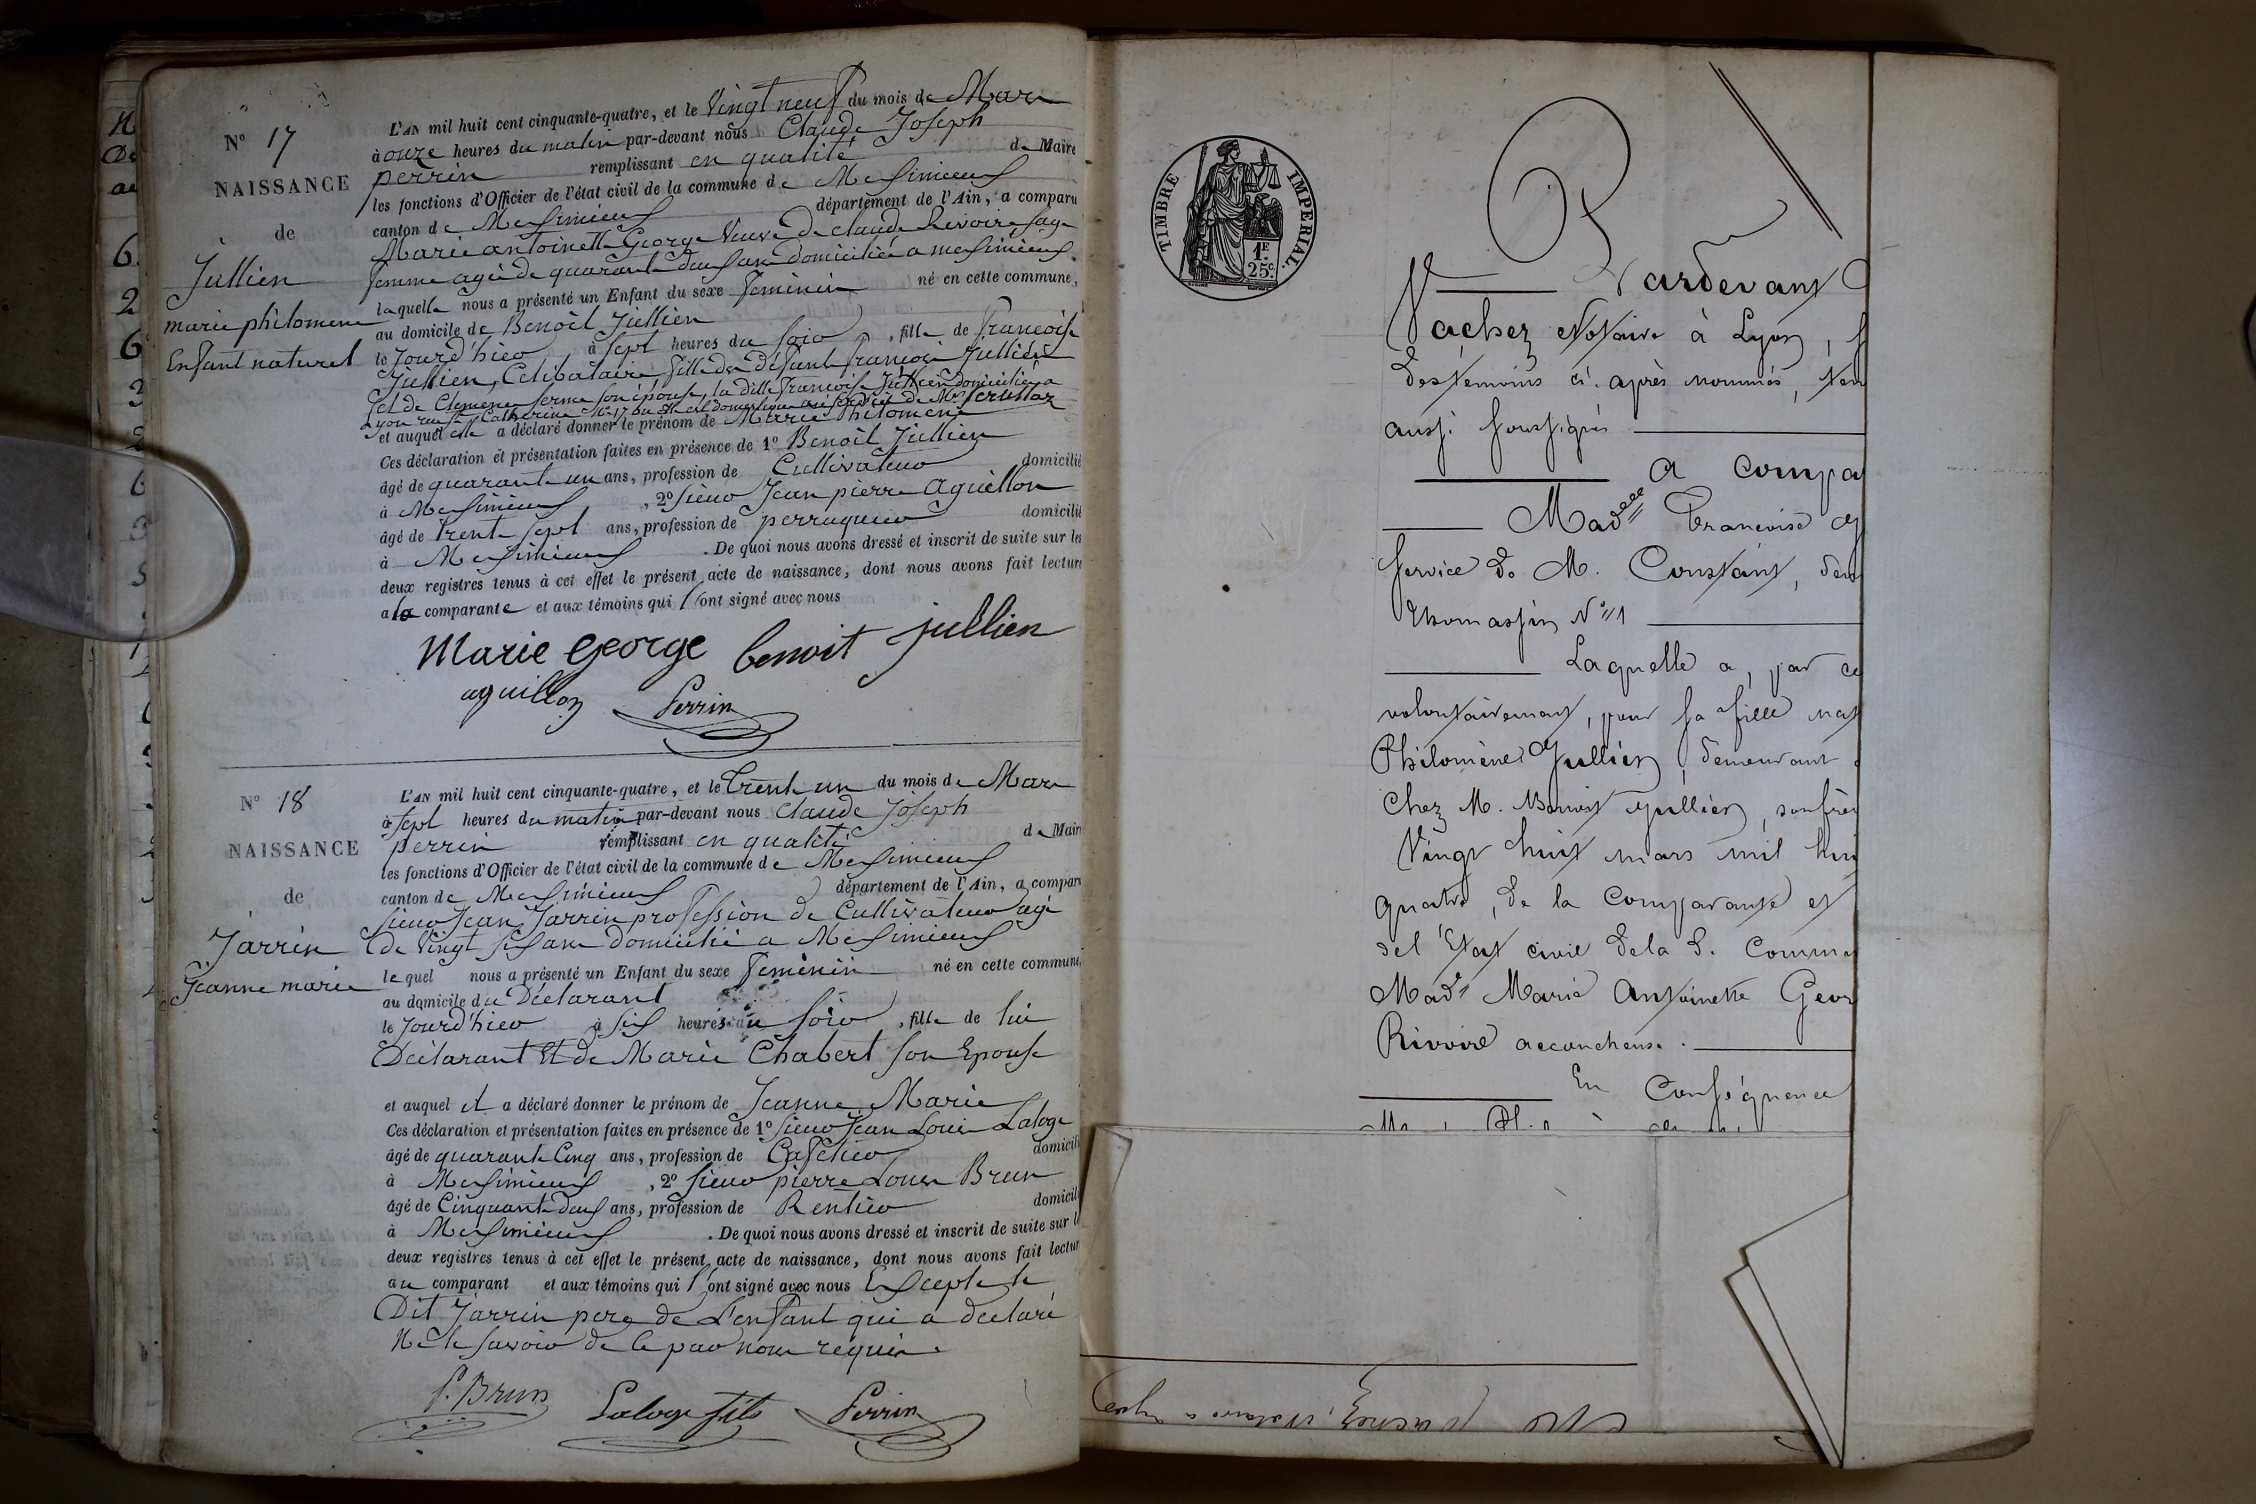 N° 17
NAISSANCE
de
Jullien
marie philomene
Enfant naturel
L'AN mil huit cent cinquante-quatre, et le Vingt neuf du mois de Mars
à onze heures du matin par-devant nous Claude Joseph
perrin remplissant en qualité de Maire
les fonctions d'Officier de l'état civil de la commune de Meximieux
canton de Meximieux département de l'Ain, a comparu
Marie antoinette George Veuve de claude Rivoire, sage
femme agée de quarante deux ans domiciliée a meximieux.
laquelle nous a présenté un Enfant du sexe feminin né en cette commune,
au domicile de Benoît Jullien
le Jourd'hier à Sept heures du soir, fille de françoise
Jullien, Celibataire fille de Défunt françois Jullien
et de Clemence ferme son épouse, la ditte françoise Jullien domiciliée a
Lyon rue Ste Catherine N° 17 domestique au service de Mr
et auquel elle a déclaré donner le prénom de Marie Philomene
Ces déclaration et présentation faites en présence de 1° Benoît Jullien
âgé de quarante un ans, profession de Cultivateur domicilié
à Meximieux, 2° sieur Jean pierre aguillon
âgé de trente sept ans, profession de perruquier domicilié
à Meximieux. De quoi nous avons dressé et inscrit de suite sur les
deux registres tenus à cet effet le présent acte de naissance, dont nous avons fait lecture
a la comparante et aux témoins qui l'ont signé avec nous
Marie george benoit jullien
aguillon Perrin
N° 18
NAISSANCE
de
Jarrin
Jeanne marie
L'AN mil huit cent cinquante-quatre, et le trente un du mois de Mars
à Sept heures du matin par-devant nous Claude Joseph
perrin remplissant en qualité de Maire
les fonctions d'Officier de l'état civil de la commune de Meximieux
canton de Meximieux département de l'Ain, a comparu
sieur Jean Jarrin profession de Cultivateur agé
de Vingt six ans domicilié a Meximieux
le quel nous a présenté un Enfant du sexe feminin né en cette commune,
au domicile du Déclarant
le Jourd'hier à Six heures du soir, fille de lui
Déclarant Et de Marie Chabert son Epouse
et auquel il a déclaré donner le prénom de Jeanne Marie
Ces déclaration et présentation faites en présence de 1° sieur Jean Louis Laloge
âgé de quarante Cinq ans, profession de Cafetier domicilié
à Meximieux, 2° sieur pierre Louis Brun
âgé de Cinquante deux ans, profession de Rentier domicilié
à Meximieux. De quoi nous avons dressé et inscrit de suite sur les
deux registres tenus à cet effet le présent acte de naissance, dont nous avons fait lecture
au comparant et aux témoins qui l'ont signé avec nous Excepte le
Dit Jarrin pere de L'enfant qui a declaré
Ne le savoir de ce par nous requis.
P. Brun Laloge fils Perrin
TIMBRE IMPERIAL.
1F.
25c.
Pardevant
Vachez Notaire à Lyon,
des témoins ci-après nommés,
aussi soussignés
A compa
Madelle Francoise
service de M. Constant, dem
Thomassin N° 1
Laquelle a, par ce
volontairement, pour sa fille nat
Philomène Jullien, demeurant
chez M. Benoit Jullien, son frère
Vingt huit mars mil hui
quatre, de la Comparante et
de l'Etat civil de la d. Commu
Made Marie Antoinette Geor
Rivoire accoucheuse.
En Conséquence